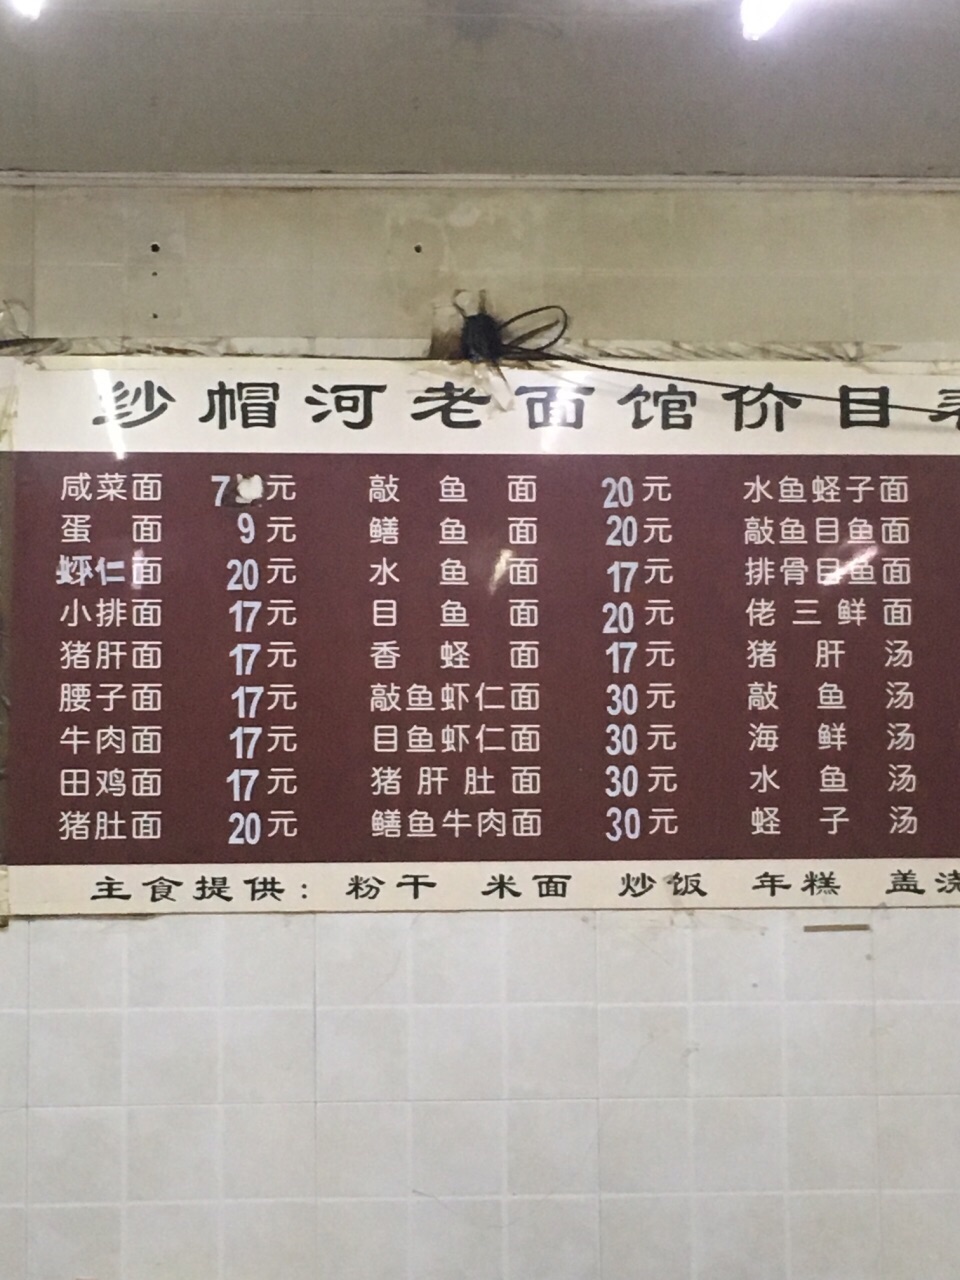 纱帽河老面馆价目表
咸菜面 7 元 敲鱼面 20元 水鱼蛏子面
蛋面 9元 鳝鱼面 20元 敲鱼目鱼面
虾仁面 20元 水鱼面 17元 排骨目鱼面
小排面 17元 目鱼面 20元 佬三鲜面
猪肝面 17元 香蛏面 17元 猪肝汤
腰子面 17元 敲鱼虾仁面 30元 敲鱼汤
牛肉面 17元 目鱼虾仁面 30元 海鲜汤
田鸡面 17元 猪肝肚面 30元 水鱼汤
猪肚面 20元 鳝鱼牛肉面 30元 蛏子汤
主食提供：粉干 米面 炒饭 年糕 盖浇